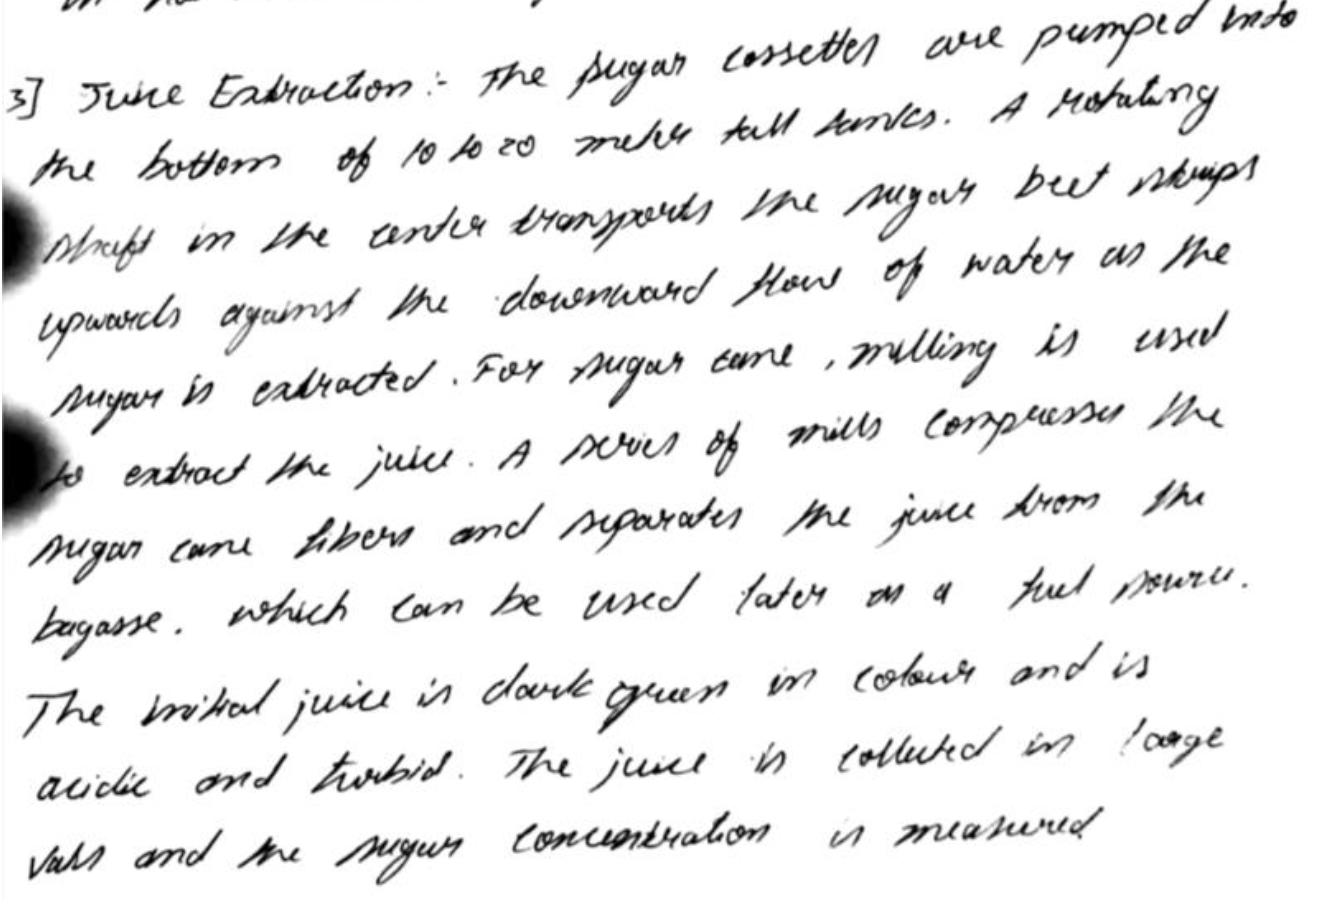 3] Juice Extraction :- The sugar cossettes are pumped into
the bottom of 10 to 20 meter tall tanks. A rotating
shaft in the center transports the sugar beet strips
upwards against the downward flow of water as the
sugar is extracted. For sugar cane, milling is used
to extract the juice. A series of mills compresses the
sugar cane fibers and separates the juice from the
bagasse. which can be used later as a fuel source.
The initial juice is dark green in colour and is
acidic and turbid. The juice is collected in large
vats and the sugar concentration is measured